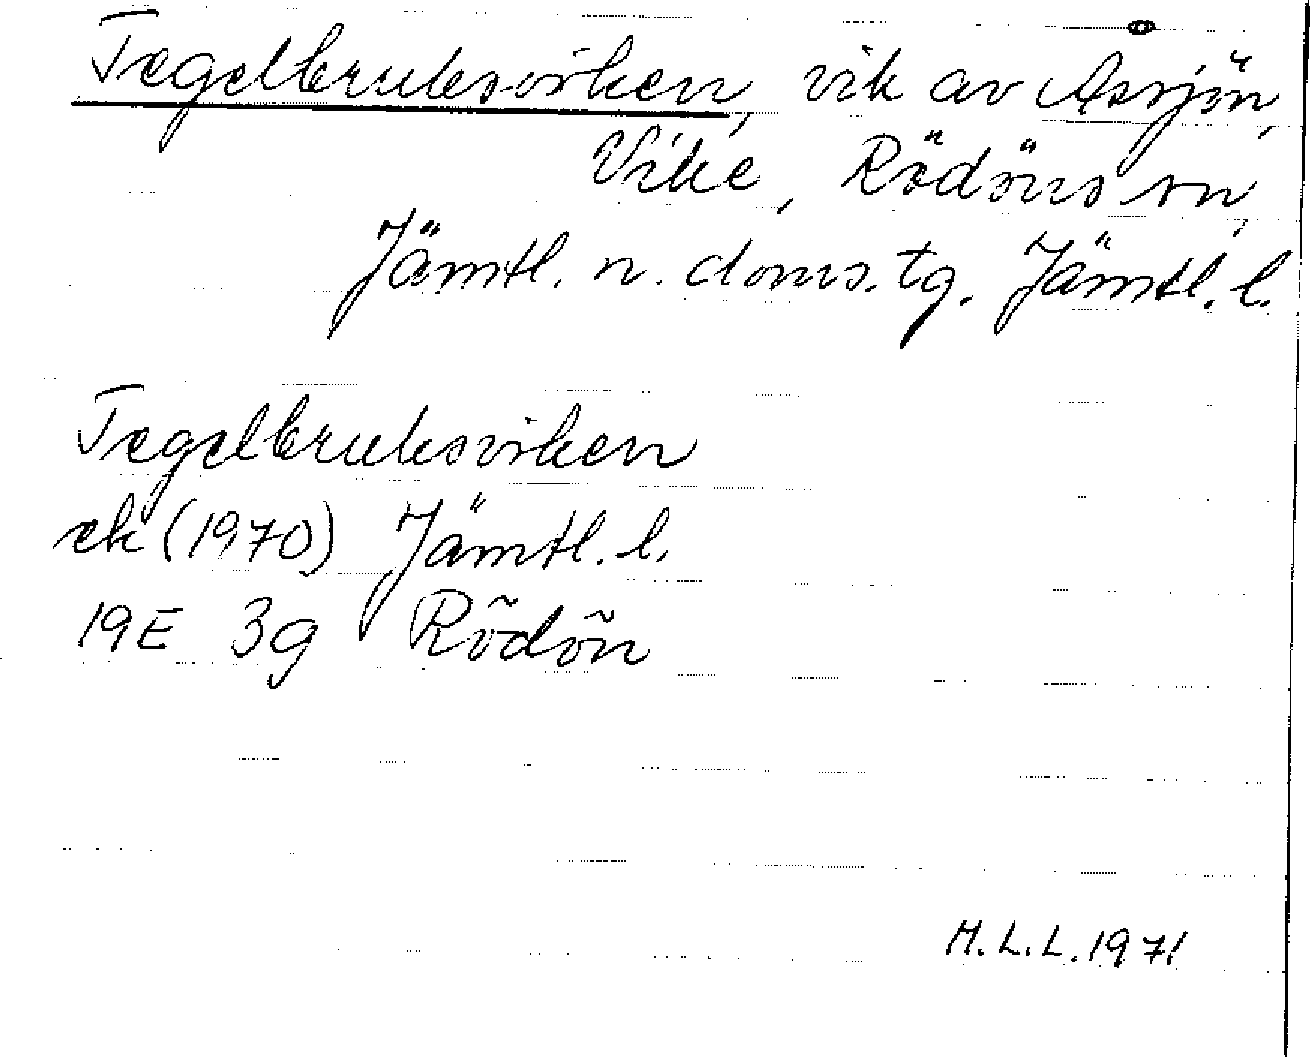 Tegelbruksviken, vik av Assjön,
Vike, Rödöns sn,
Jämtl. n. doms. tg. Jämtl. l.
Tegelbruksviken
ek (1970) Jämtl. l.
19E 3g Rödön
H.L.L. 1971